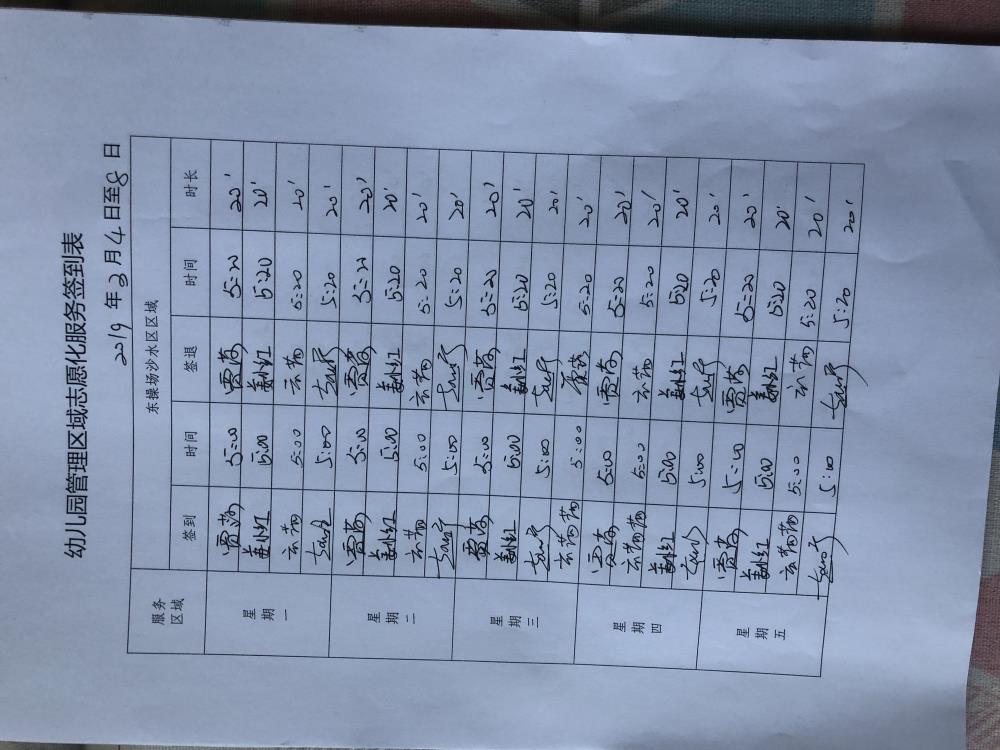 幼儿园管理区域志愿化服务签到表
2019年3月4日至8日
服务区域 东操场沙水区区域
签到 时间 签退 时间 时长
星期一
贾茹 5:00 贾茹 5:20 20'
姜小红 5:00 姜小红 5:20 20'
5:00 5:20 20'
5:00 5:20 20'
星期二
贾茹 5:00 贾茹 5:20 20'
姜小红 5:00 姜小红 5:20 20'
5:00 5:20 20'
5:00 5:20 20'
星期三
贾茹 5:00 贾茹 5:20 20'
姜小红 5:00 姜小红 5:20 20'
5:00 5:20 20'
5:00 5:20 20'
星期四
贾茹 5:00 贾茹 5:20 20'
5:00 5:20 20'
姜小红 5:00 姜小红 5:20 20'
5:00 5:20 20'
星期五
贾茹 5:00 贾茹 5:20 20'
姜小红 5:00 姜小红 5:20 20'
5:00 5:20 20'
5:00 5:20 20'